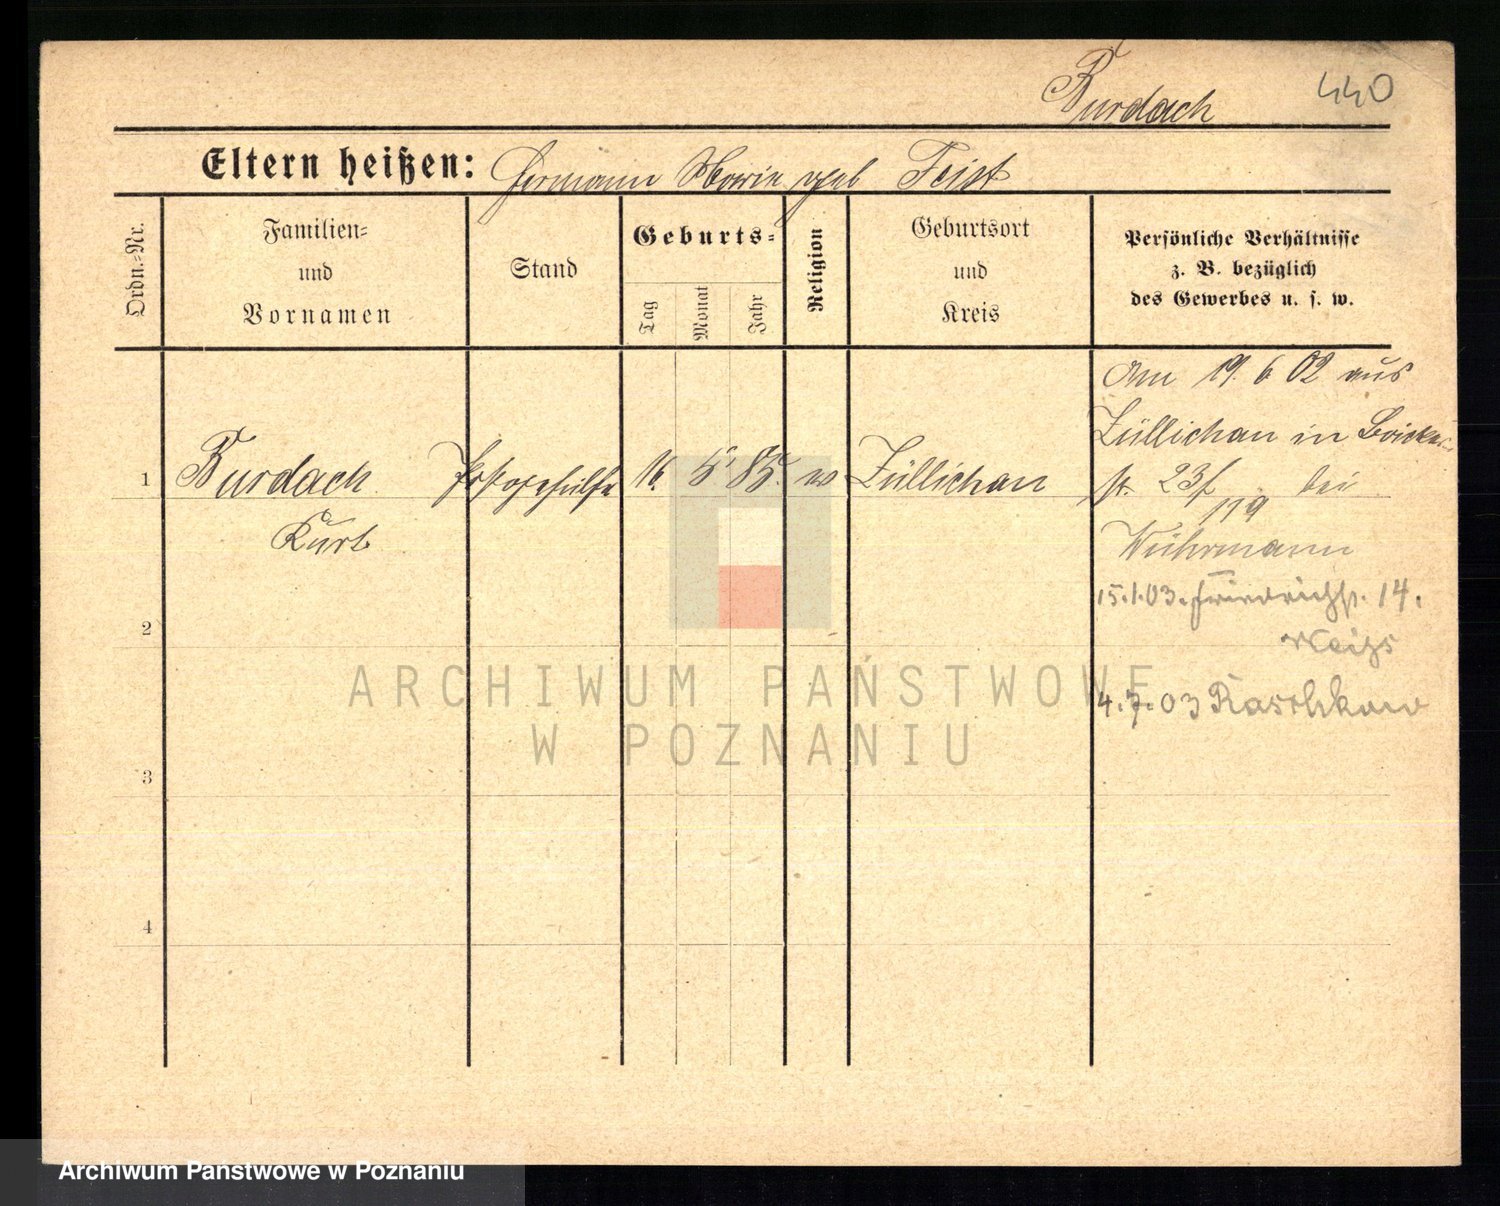 Burdach
440
Eltern heißen: Hermann Marie geb Feist
Ordn.-Nr.
Familien-
und
Vornamen
Stand
Geburts-
Tag
Monat
Jahr
Religion
Geburtsort
und
Kreis
Persönliche Verhältnisse
z. B. bezüglich
des Gewerbes u. s. w.
1
Burdach
Kurt
Postgehülfe
16. 5 85.
Züllichau
Am 19. 6 02 aus
Züllichau in
str. 23f
119 bei
Wuhrmann
15.1.03. Friedrichstr. 14.
4.7.03 Raschkow
2
3
4
ARCHIWUM PAŃSTWOWE
W POZNANIU
Archiwum Państwowe w Poznaniu